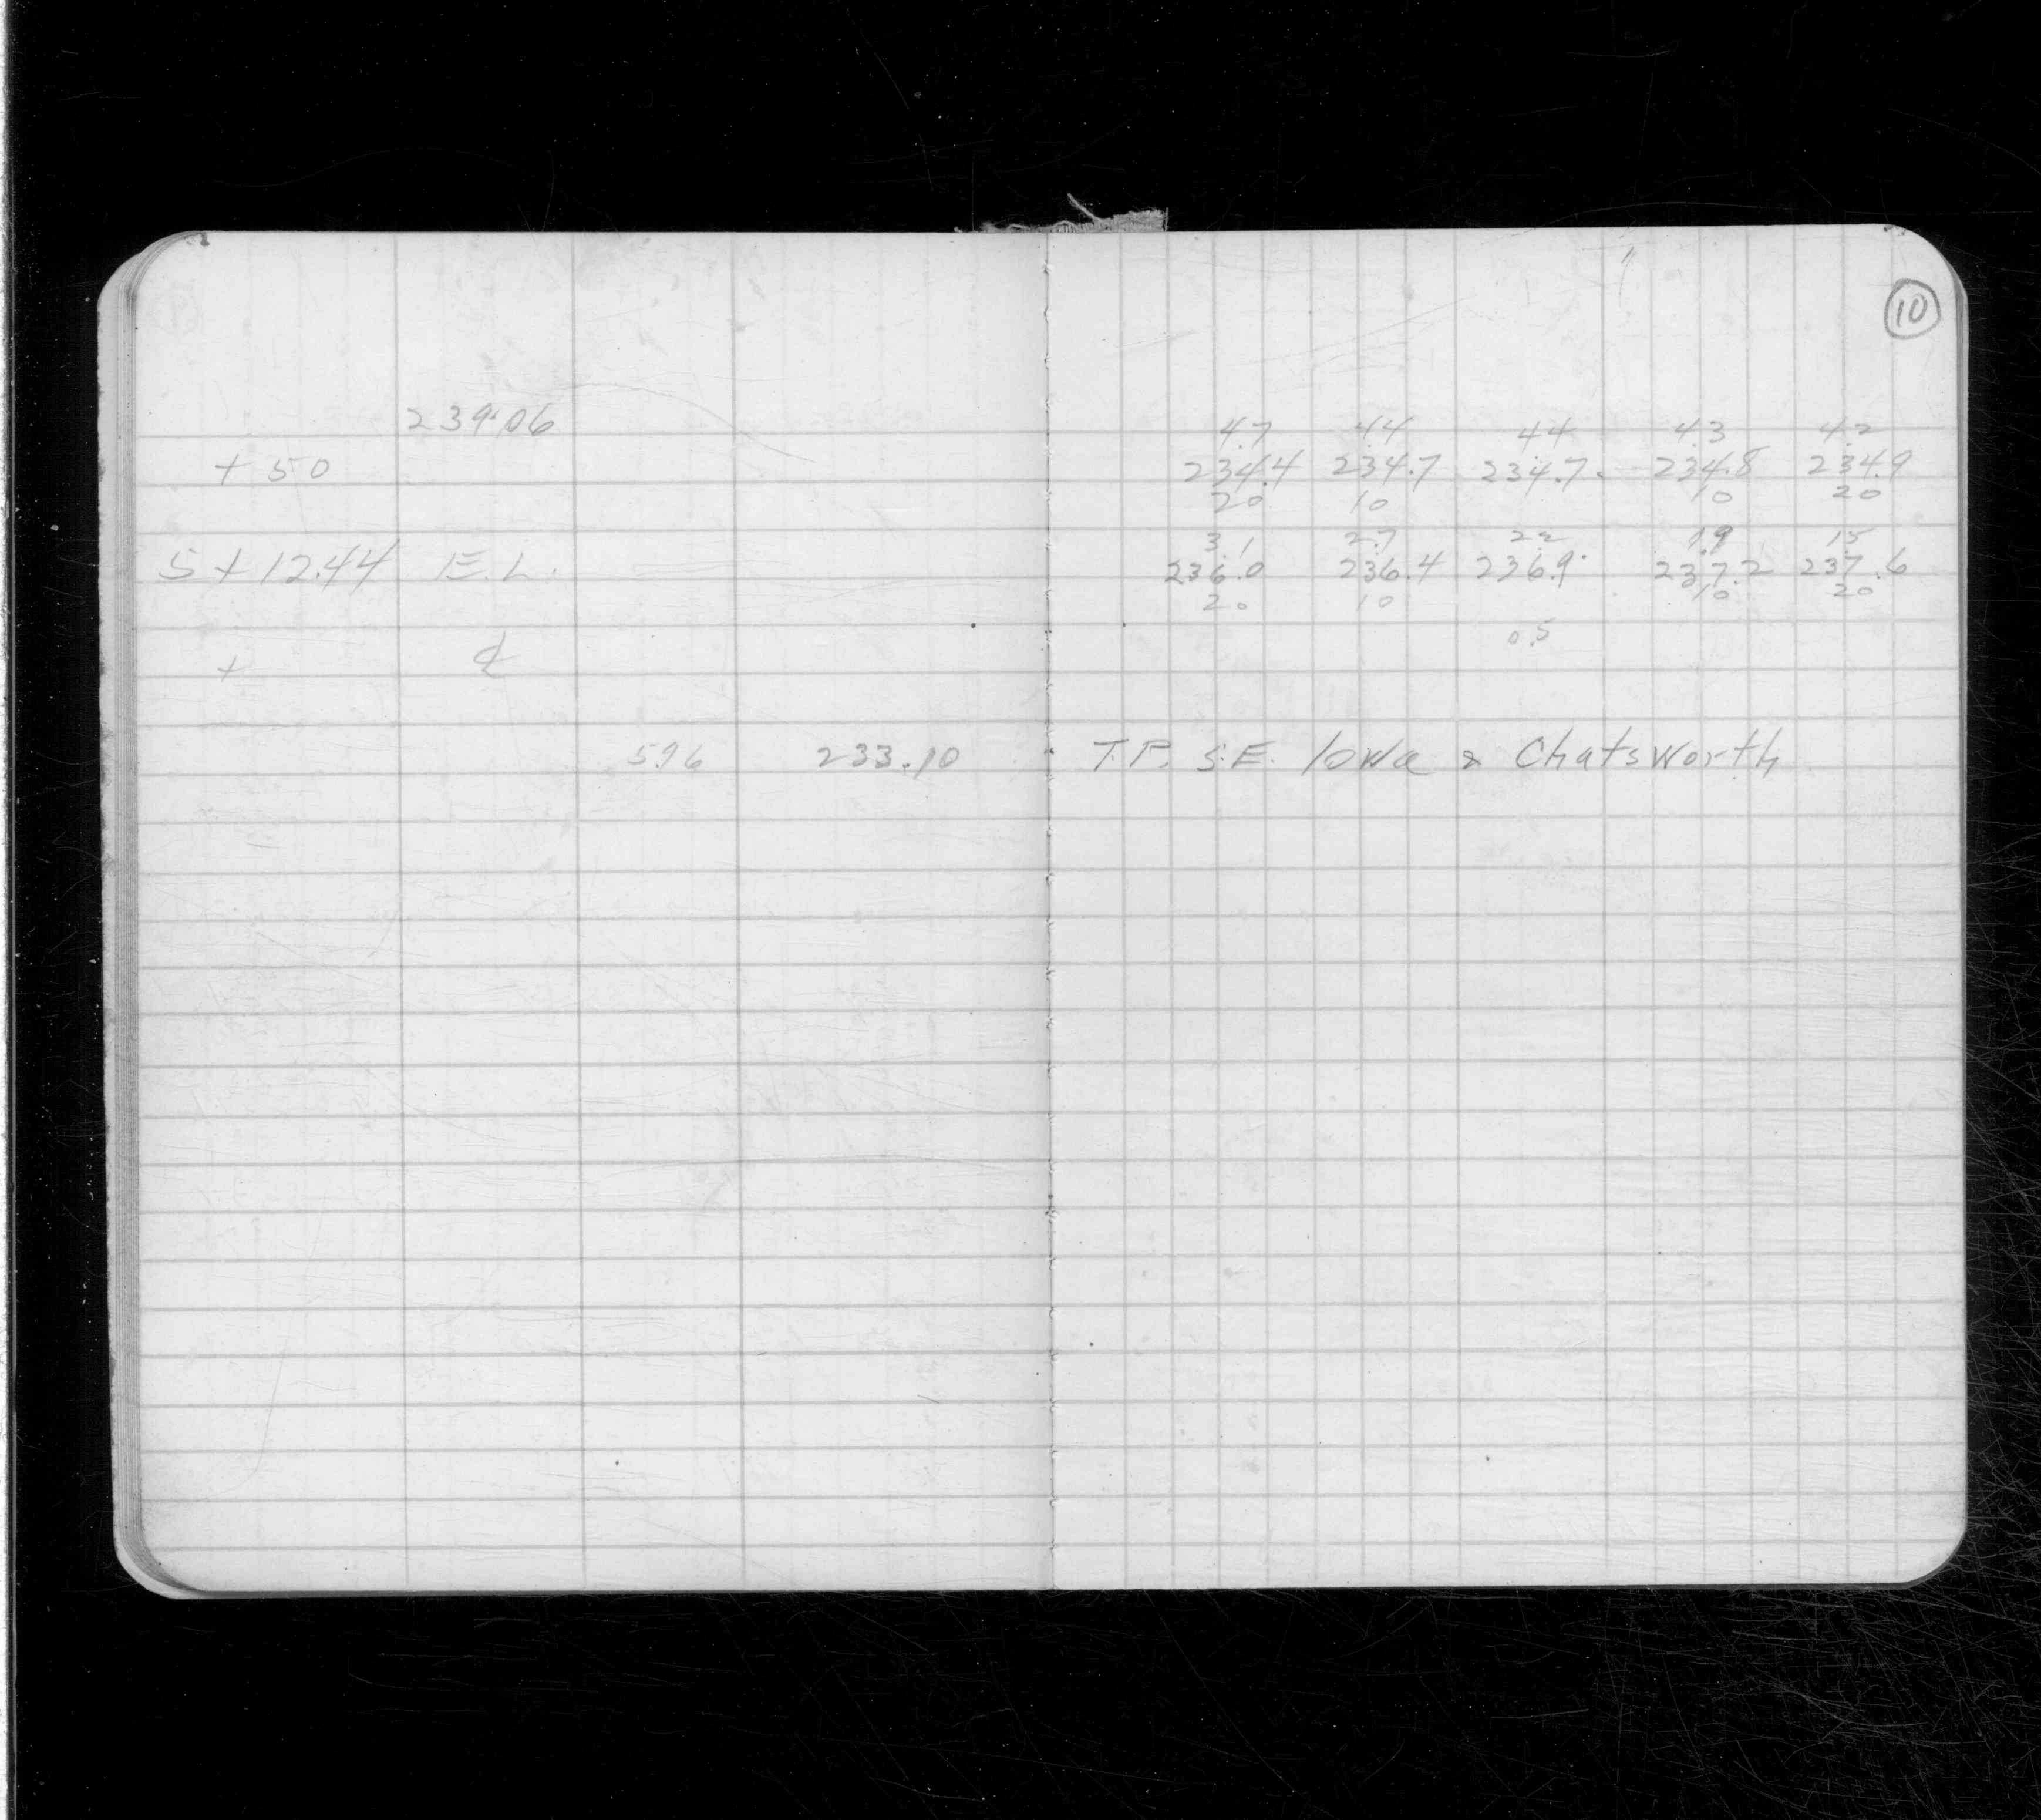 10
239.06
4.7 4.4 4.4 4.3 4.2
+ 50 234.4 234.7 234.7 234.8 234.9
20 10 10 20
3.1 2.7 2.2 1.9 1.5
5 + 12.44 E.L. 236.0 236.4 236.9 237.2 237.6
20 10 10 20
0.5
+ ℄
5.96 233.10 T.P. S.E. Iowa & Chatsworth